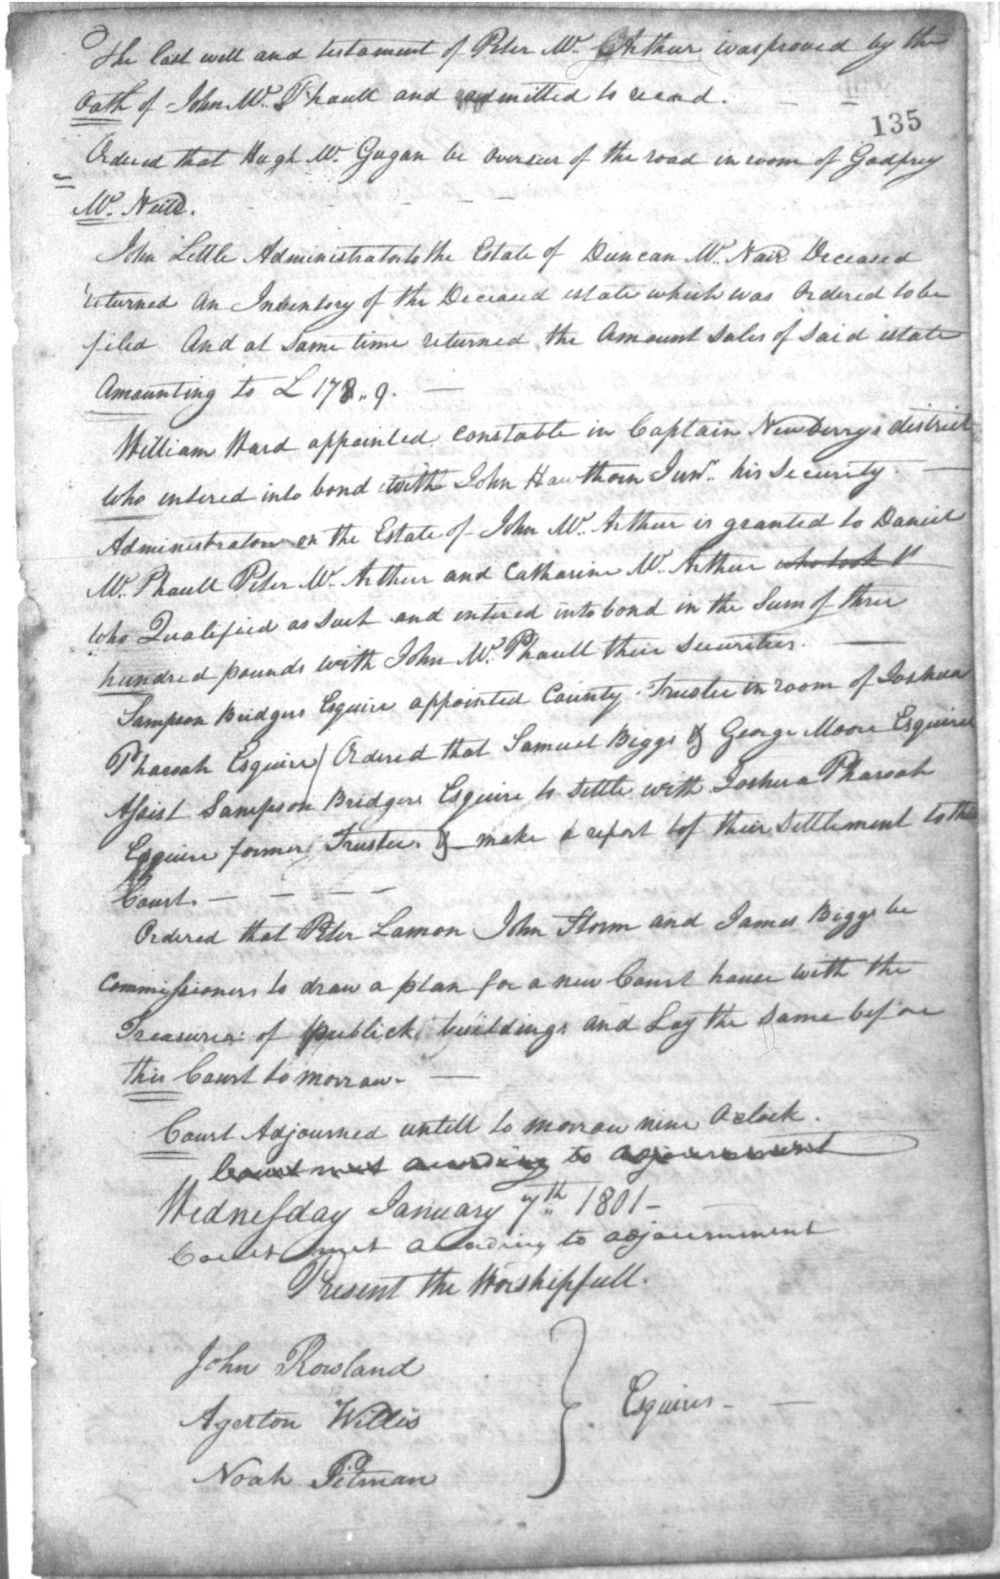 The last will and testament of Peter Mc. Arthur was proved by the
Oath of John Mc. Phaull and admitted to record.
135
Ordered that Hugh Mc. Gugan be overseer of the road in room of Godfrey
Mc. Neill.
John Little Administrator to the Estate of Duncan Mc. Nair Deceased
returned an Inventory of the Deceased estate which was Ordered to be
filed And at same time returned the Amount sales of said estate
Amounting to L 178 .. 9. —
William Ward appointed constable in Captain Newberrys district
who entered into bond with John Hawthorn Junr. his Security. —
Administration on the Estate of John Mc. Arthur is granted to Daniel
Mc. Phaull Peter Mc. Arthur and Catharine Mc. Arthur who took
who Qualified as such and entered into bond in the Sum of three
hundred pounds with John Mc. Phaull their securities. —
Sampson Bridgers Esquire appointed County Trustee in room of Joshua
Pharoah Esquire / Ordered that Samuel Biggs & George Moore Esquires
Assist Sampson Bridgers Esquire to settle with Joshua Pharoah
Esquire former Trustee & make a report of their settlement to this
Court. — — — —
Ordered that Peter Lamon John Storm and James Biggs be
commissioners to draw a plan for a new Court house with the
Treasurer of publick buildings and Lay the same before
this Court to morrow. —
Court Adjourned untill to morrow nine Oclock.
Court met according to adjournment
Wednesday January 7th 1801 —
Court met according to adjournment
Present the Worshipfull.
John Rowland
Agerton Willis
Esquires —
Noah Pitman